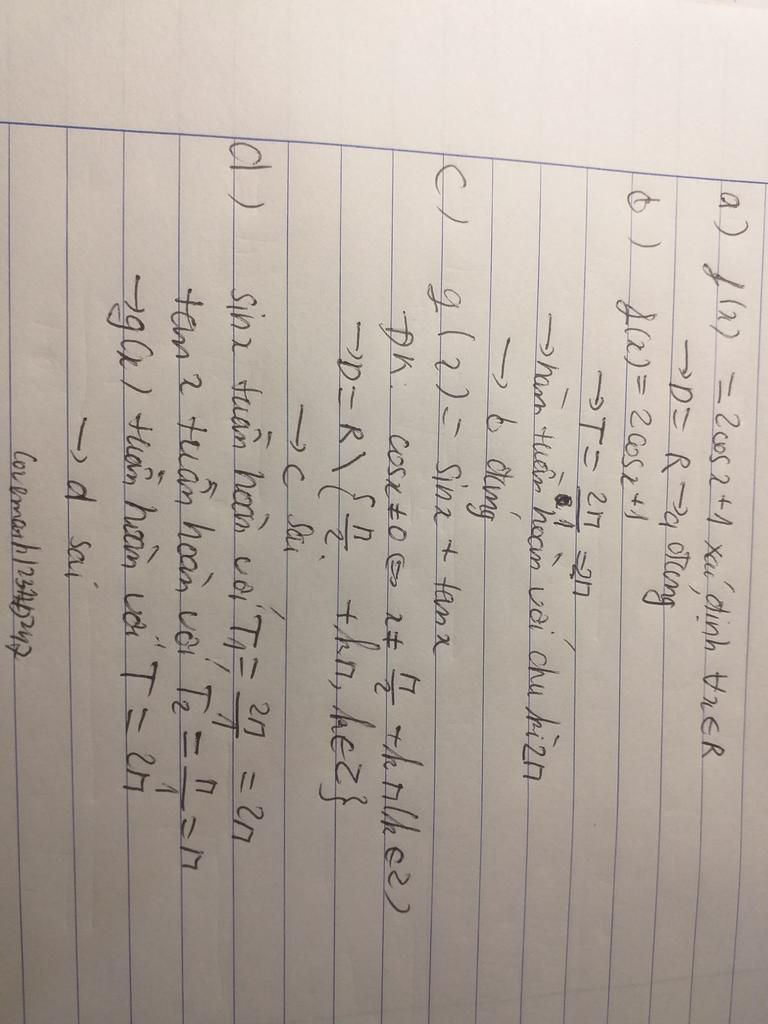 a) f(x) = 2cosx+1 xác định ∀x∈R
→D= R →a đúng
b) f(x)= 2cosx+1
→T= 2π/1 =2π
→hàm tuần hoàn với chu kì 2π
→ b đúng
c) g(x)= sinx + tanx
ĐK: cosx≠0 ⇔ x≠ π/2 +kπ (k∈Z)
→D= R\{π/2 + kπ, k∈Z}
→c sai
d) sinx tuần hoàn với T1= 2π/1 = 2π
tanx tuần hoàn với T2= π/1 =π
→g(x) tuần hoàn với T= 2π
→d sai